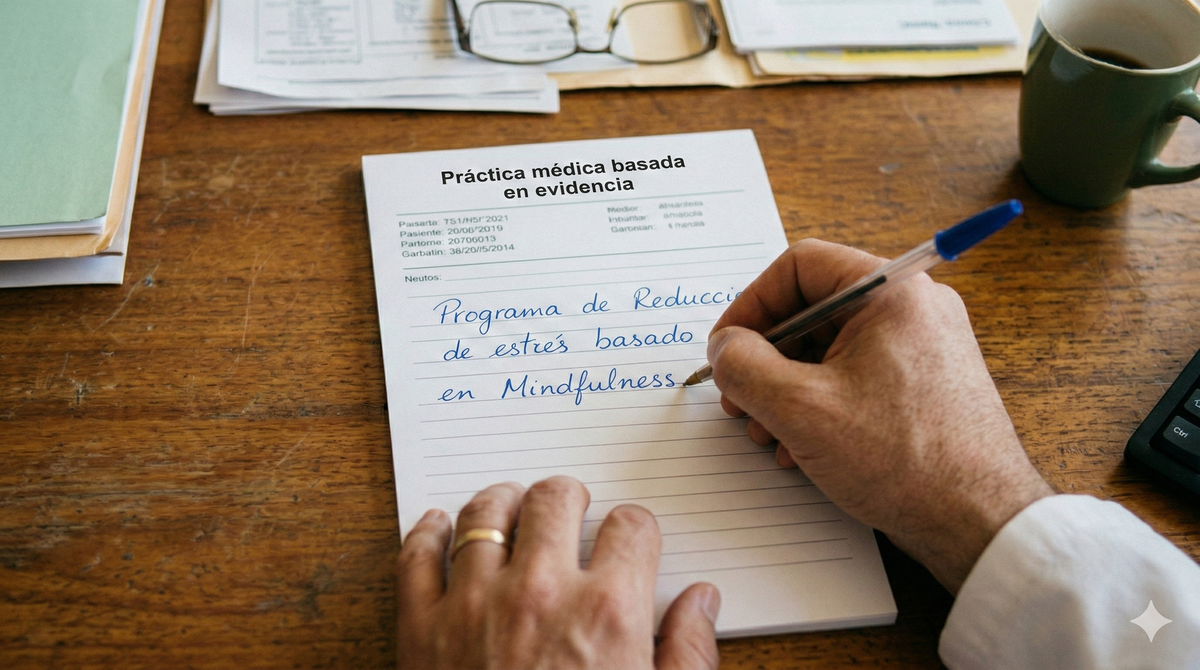 Práctica médica basada
en evidencia
Paisarta: TS1/H5/'2021
Pasiente: 20/06/2019
Partome: 20706013
Garbatin: 38/20//5/2014
Neutos:
Programa de Reducci
de estrés basado
en Mindfulness
Ctrl